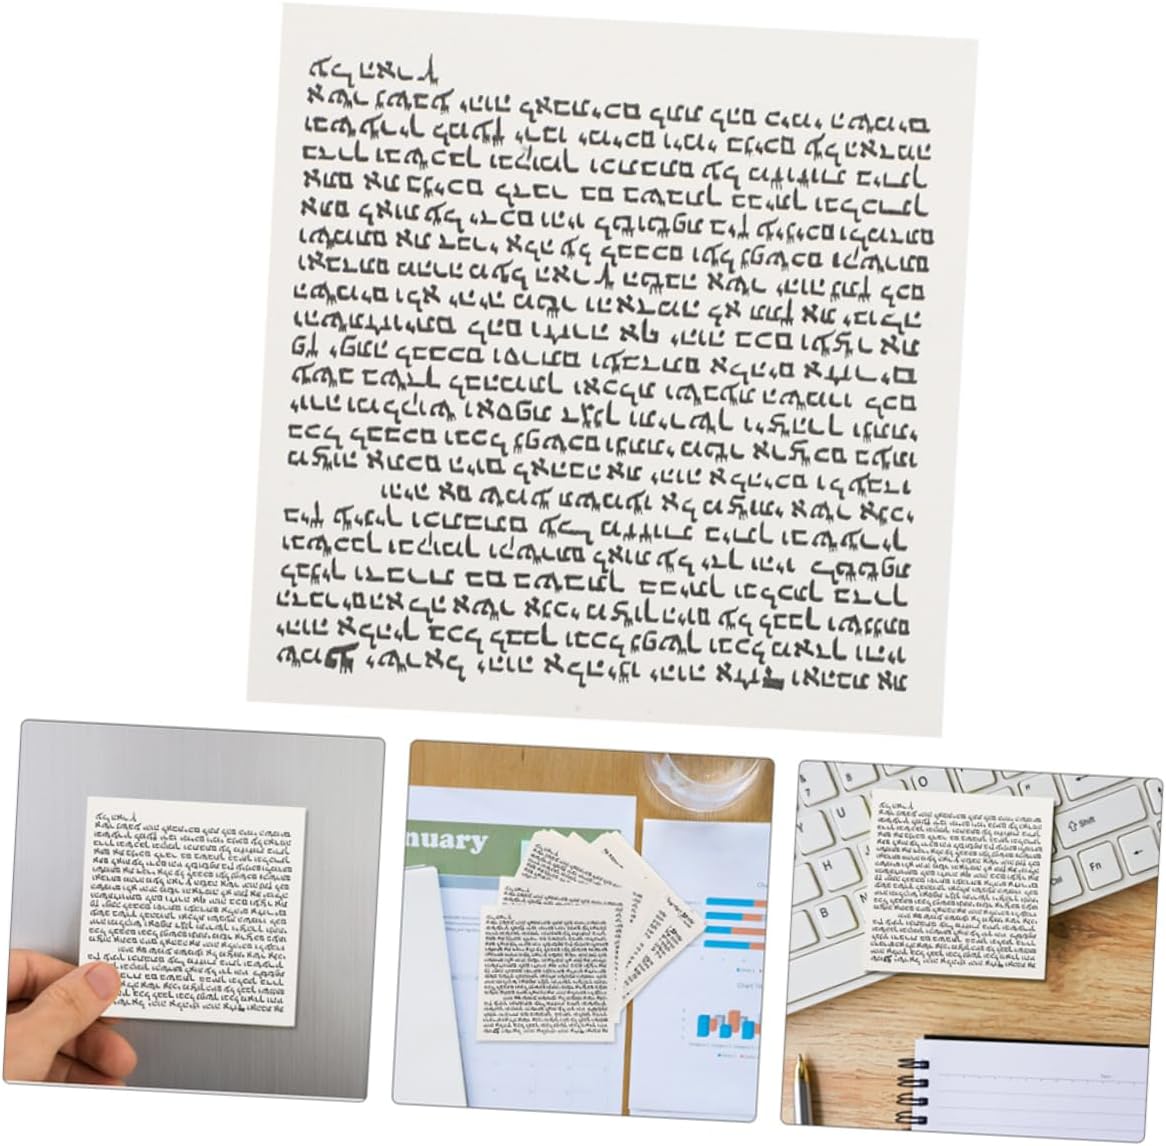 שמע ישראל יהוה אלהינו יהוה אחד ואהבת את
יהוה אלהיך בכל לבבך ובכל נפשך ובכל מאדך והיו
הדברים האלה אשר אנכי מצוך היום על לבבך ושננתם
לבניך ודברת בם בשבתך בביתך ובלכתך בדרך
ובשכבך ובקומך וקשרתם לאות על ידך והיו לטטפת
בין עיניך וכתבתם על מזזות ביתך ובשעריך
והיה אם שמע תשמעו אל מצותי אשר אנכי
מצוה אתכם היום לאהבה את יהוה אלהיכם ולעבדו
בכל לבבכם ובכל נפשכם ונתתי מטר ארצכם בעתו
יורה ומלקוש ואספת דגנך ותירשך ויצהרך ונתתי
עשב בשדך לבהמתך ואכלת ושבעת השמרו לכם
פן יפתה לבבכם וסרתם ועבדתם אלהים אחרים
והשתחויתם להם וחרה אף יהוה בכם ועצר את
השמים ולא יהיה מטר והאדמה לא תתן את יבולה
ואבדתם מהרה מעל הארץ הטבה אשר יהוה נתן לכם
ושמתם את דברי אלה על לבבכם ועל נפשכם וקשרתם
אתם לאות על ידכם והיו לטוטפת בין עיניכם ולמדתם
אתם את בניכם לדבר בם בשבתך בביתך ובלכתך
בדרך ובשכבך ובקומך וכתבתם על מזוזות ביתך
ובשעריך למען ירבו ימיכם וימי בניכם על האדמה
אשר נשבע יהוה לאבתיכם לתת להם כימי השמים
על הארץ
nuary
Shift
Fn
H
B
N
J
O